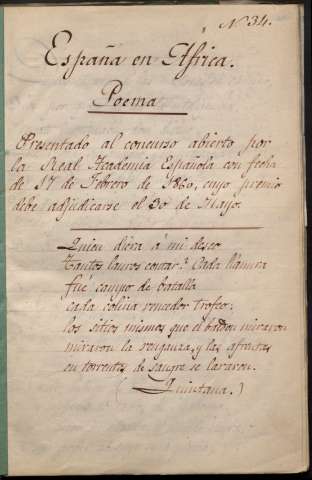 Nº 34.
España en África.
Poema
Presentado al concurso abierto por
la Real Academia Española con fecha
de 17 de Febrero de 1860, cuyo premio
debe adjudicarse el 30 de Mayo.
Quien diera á mi deseo
Tantos lauros contar? Cada llanura
fué campo de batalla
cada colina vencedor trofeo:
los sitios mismos que el baldon miraron
miraron la venganza, y las afrentas
en torrentes de sangre se lavaron.
(Quintana.)